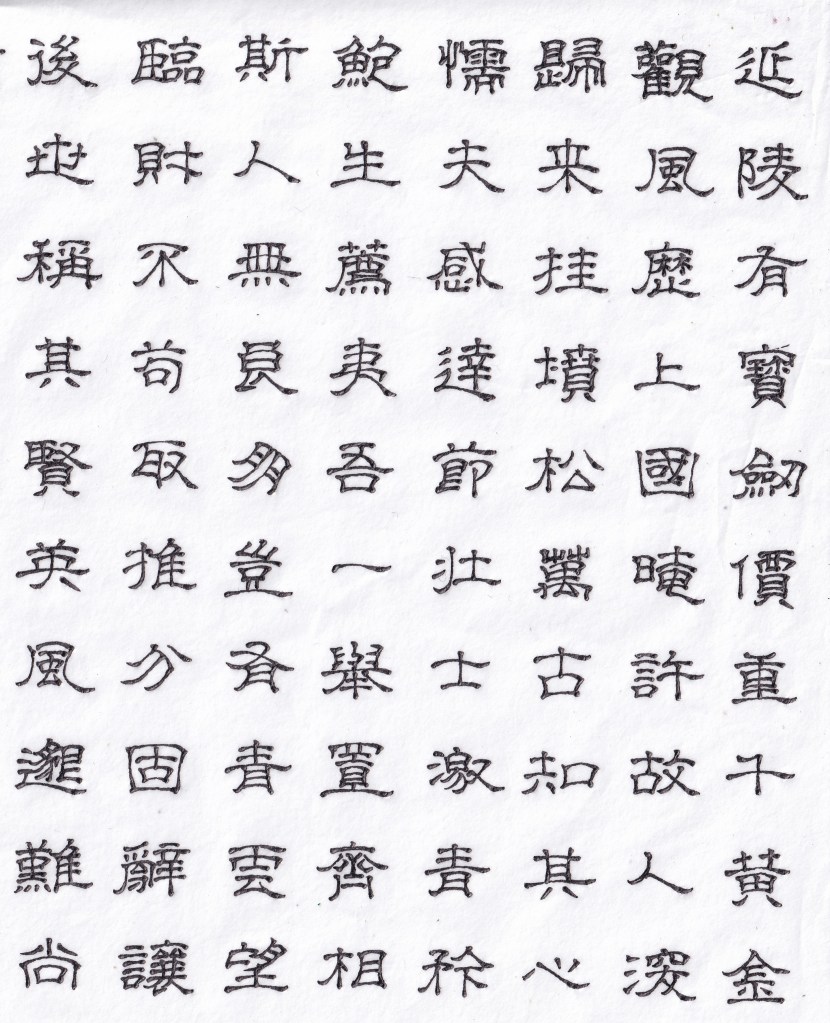 延陵有寶劒價重千黄金
觀風歷上國晻許故人深
歸来挂墳松萬古知其心
懦夫感達節壯士激青衿
鮑生薦夷吾一舉置齊相
斯人無良朋豈有青雲望
臨財不苟取推分固辭讓
後世稱其賢英風邈難尚